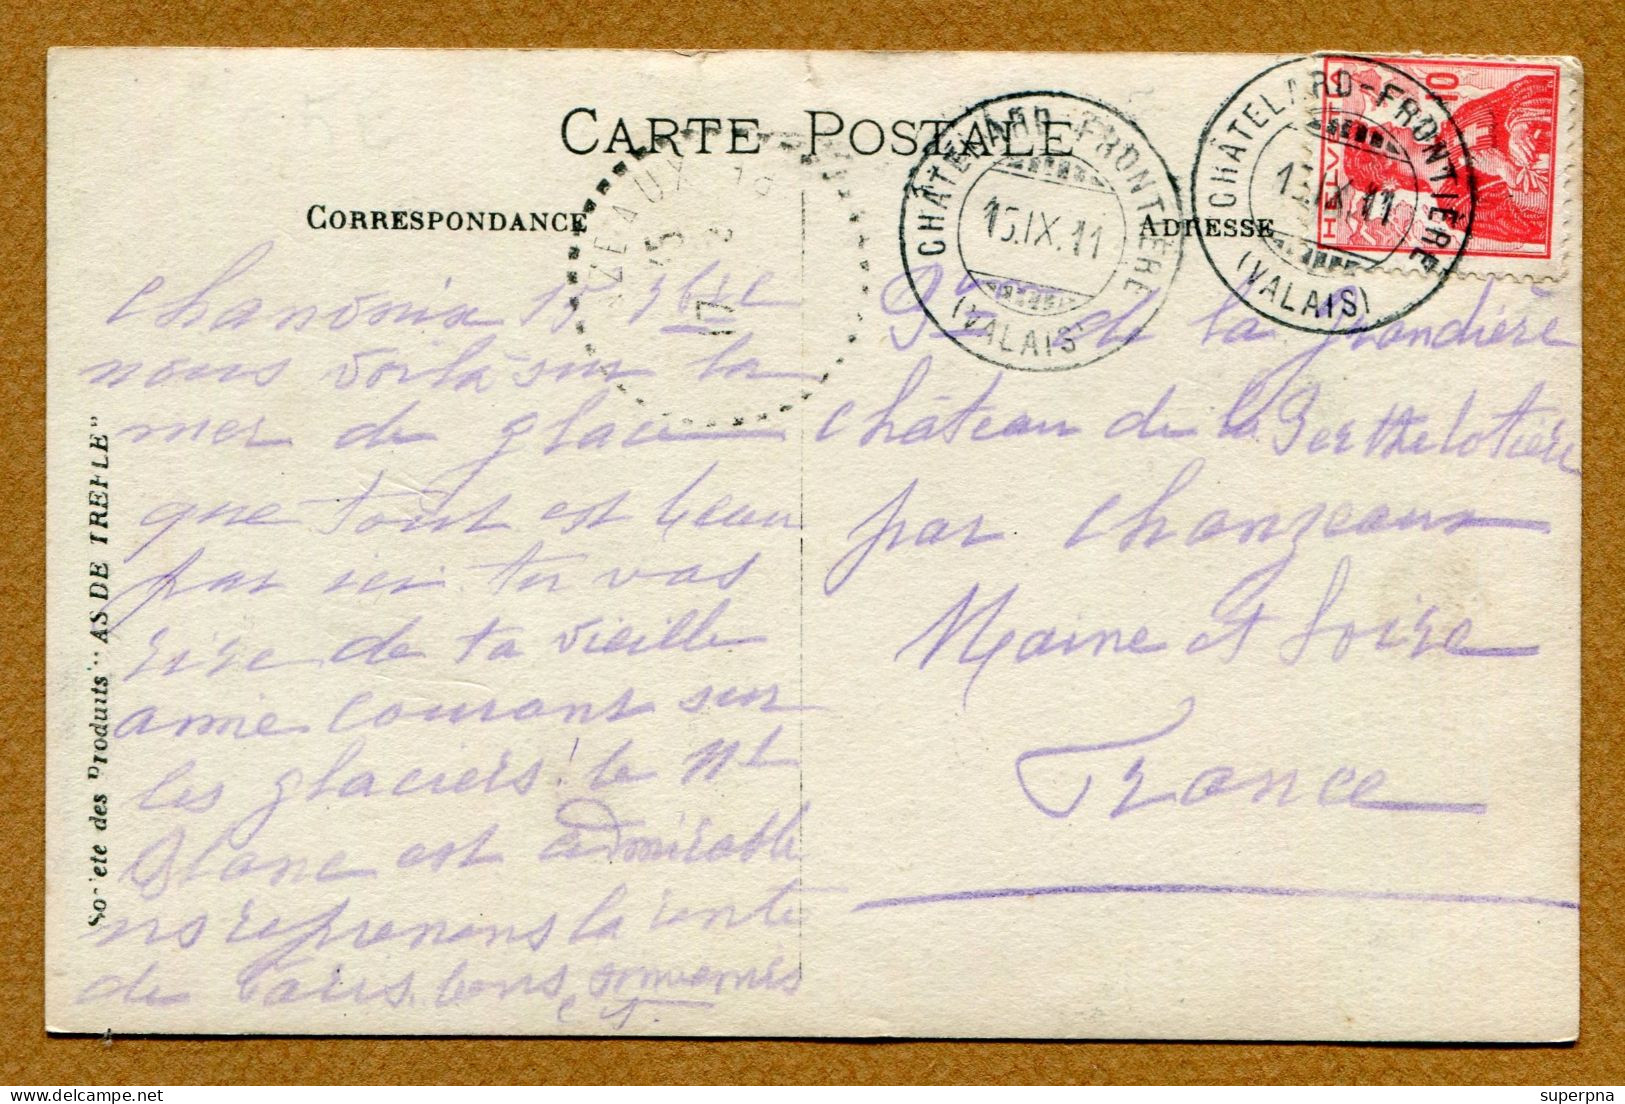 CARTE POSTALE
CORRESPONDANCE
ADRESSE
CHÂTELARD-FRONTIÈRE
15.IX.11
(VALAIS)
CHÂTELARD-FRONTIÈRE
15.IX.11
(VALAIS)
HELVETIA
10
ZEAUX
15
17
Chamonix 15 7bre
nous voilà sur la
mer de glace
que tout est beau
par ici tu vas
rire de ta vieille
amie courant sur
les glaciers! le Mt
Blanc est admirable
ns reprenons la route
de Paris. bons souvenirs
de la Grandière
château de la Berthelotière
par Chanzeaux
Maine et Loire
France
Société des Produits "AS DE TREFLE"
superpna